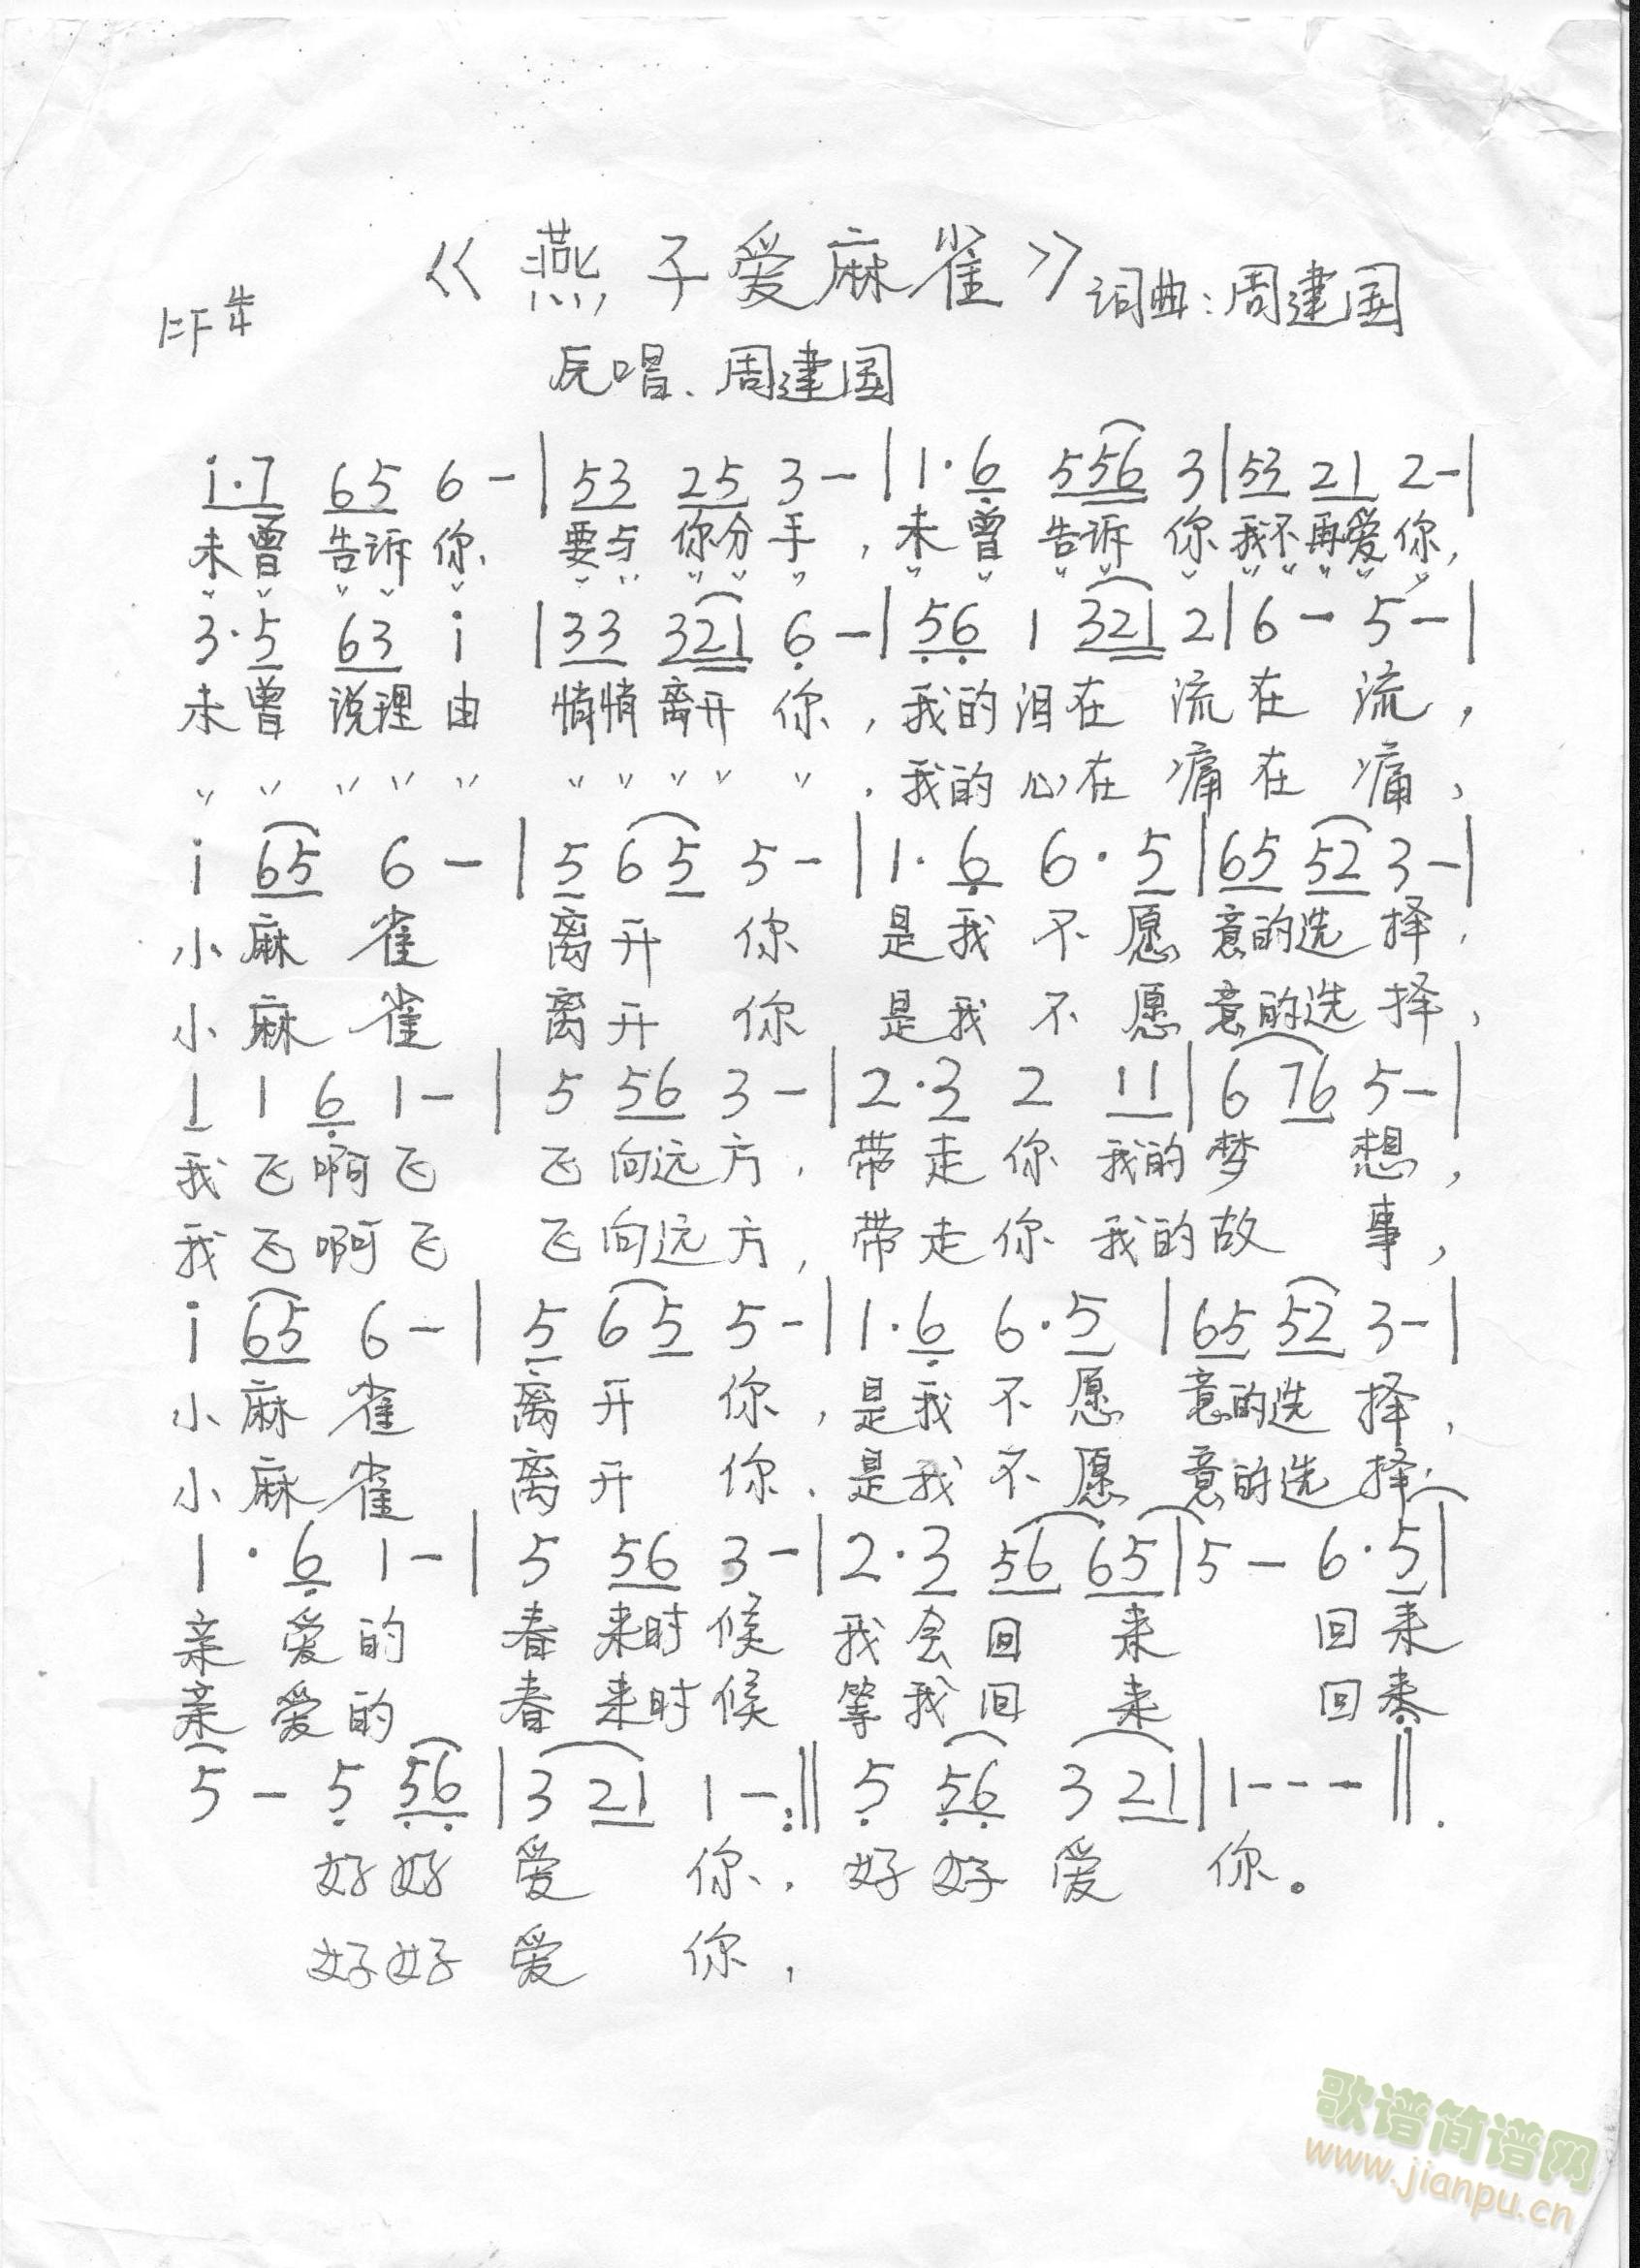 《燕子爱麻雀》 词曲:周建国
1=F 4/4
原唱、周建国
i·7 65 6 - | 53 25 3 - | 1·6 556 3 | 53 21 2 - |
未曾告诉你、要与你分手,未曾告诉你我不再爱你,
" " " " " " " " " " " " " " " " " " " "
3·5 63 i | 33 321 6 - | 56 1 321 2 | 6 - 5 - |
未曾说理由 悄悄离开你,我的泪在流在流,
" " " " " " " " " " .我的心在痛在痛,
i 65 6 - | 5 65 5 - | 1·6 6·5 | 65 52 3 - |
小麻雀 离开你 是我不愿意的选择,
小麻雀 离开你 是我不愿意的选择,
1 1 6 1 - | 5 56 3 - | 2·3 2 11 | 6 76 5 - |
我飞啊飞 飞向远方,带走你我的梦想,
我飞啊飞 飞向远方,带走你我的故事,
i 65 6 - | 5 65 5 - | 1·6 6·5 | 65 52 3 - |
小麻雀 离开你,是我不愿意的选择,
小麻雀 离开你、是我不愿意的选择
1·6 1 - | 5 56 3 - | 2·3 56 65 | 5 - 6·5 |
亲爱的 春来时候 我会回来 回来
亲爱的 春来时候 等我回来 回来
5 - 5 56 | 3 21 1 - :‖ 5 56 3 21 | 1 - - - ‖.
好好爱你,好好爱你。
好好爱你,
歌谱简谱网
www.jianpu.cn